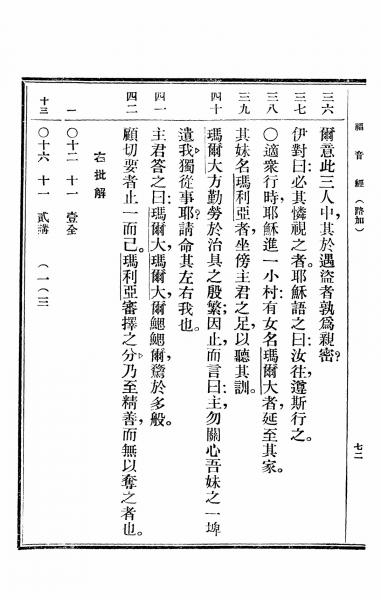 福音經（路加）
七二
三六 爾意此三人中，其於遇盜者孰爲親密？
三七 伊對曰：必其憐視之者。耶穌語之曰：汝往，遵斯行之。
三八 ○適衆行時，耶穌進一小村：有女名瑪爾大者，延至其家。
三九 其妹名瑪利亞者，坐傍主君之足，以聽其訓。
四十 瑪爾大方勤勞於治具之殷繁；因止而言曰：主，勿關心吾妹之一埤
遺我獨從事耶？請命其左右我也。
四一 主君答之曰：瑪爾大，瑪爾大，爾鰓鰓爾，騖於多般。
四二 顧切要者止一而已。瑪利亞審擇之分，乃至精善，而無以奪之者也。
右批解
一 ○十二 十一 壹全
十三 ○十六 十一 貳講 （一（三